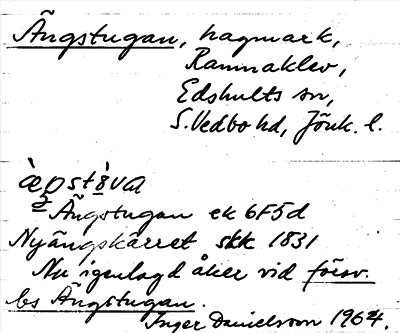 Ängstugan, hagmark,
Ramnaklev,
Edshults sn,
S. Vedbo hd, Jönk. l.
Ängstugan ek 6F5d
Nyängskärret skk 1831
Nu igenlagd åker vid försv.
bs Ängstugan.
Inger Danielsson 1964.